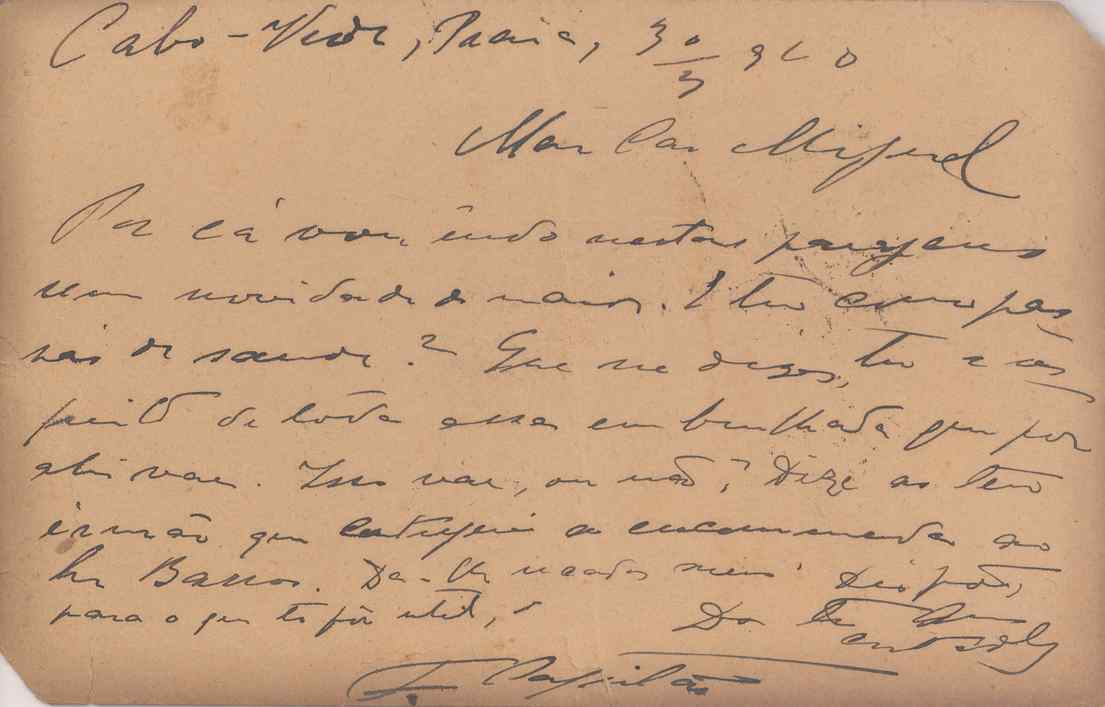 Cabo-Verde, Praia, 30/3 920
Meu Caro Miguel
Por cá vou indo nestas paragens
sem novidade de maior. E tu como pas
sas de saude? Que me dizes, tu a res
peito de toda essa embrulhada que por
ahi vae. Isso vae, ou não? Dize ao teu
irmão que entreguei a encommenda ao
Snr Barros. Da-lhe recados meus. Dispõe,
para o que te fôr util, Do teu